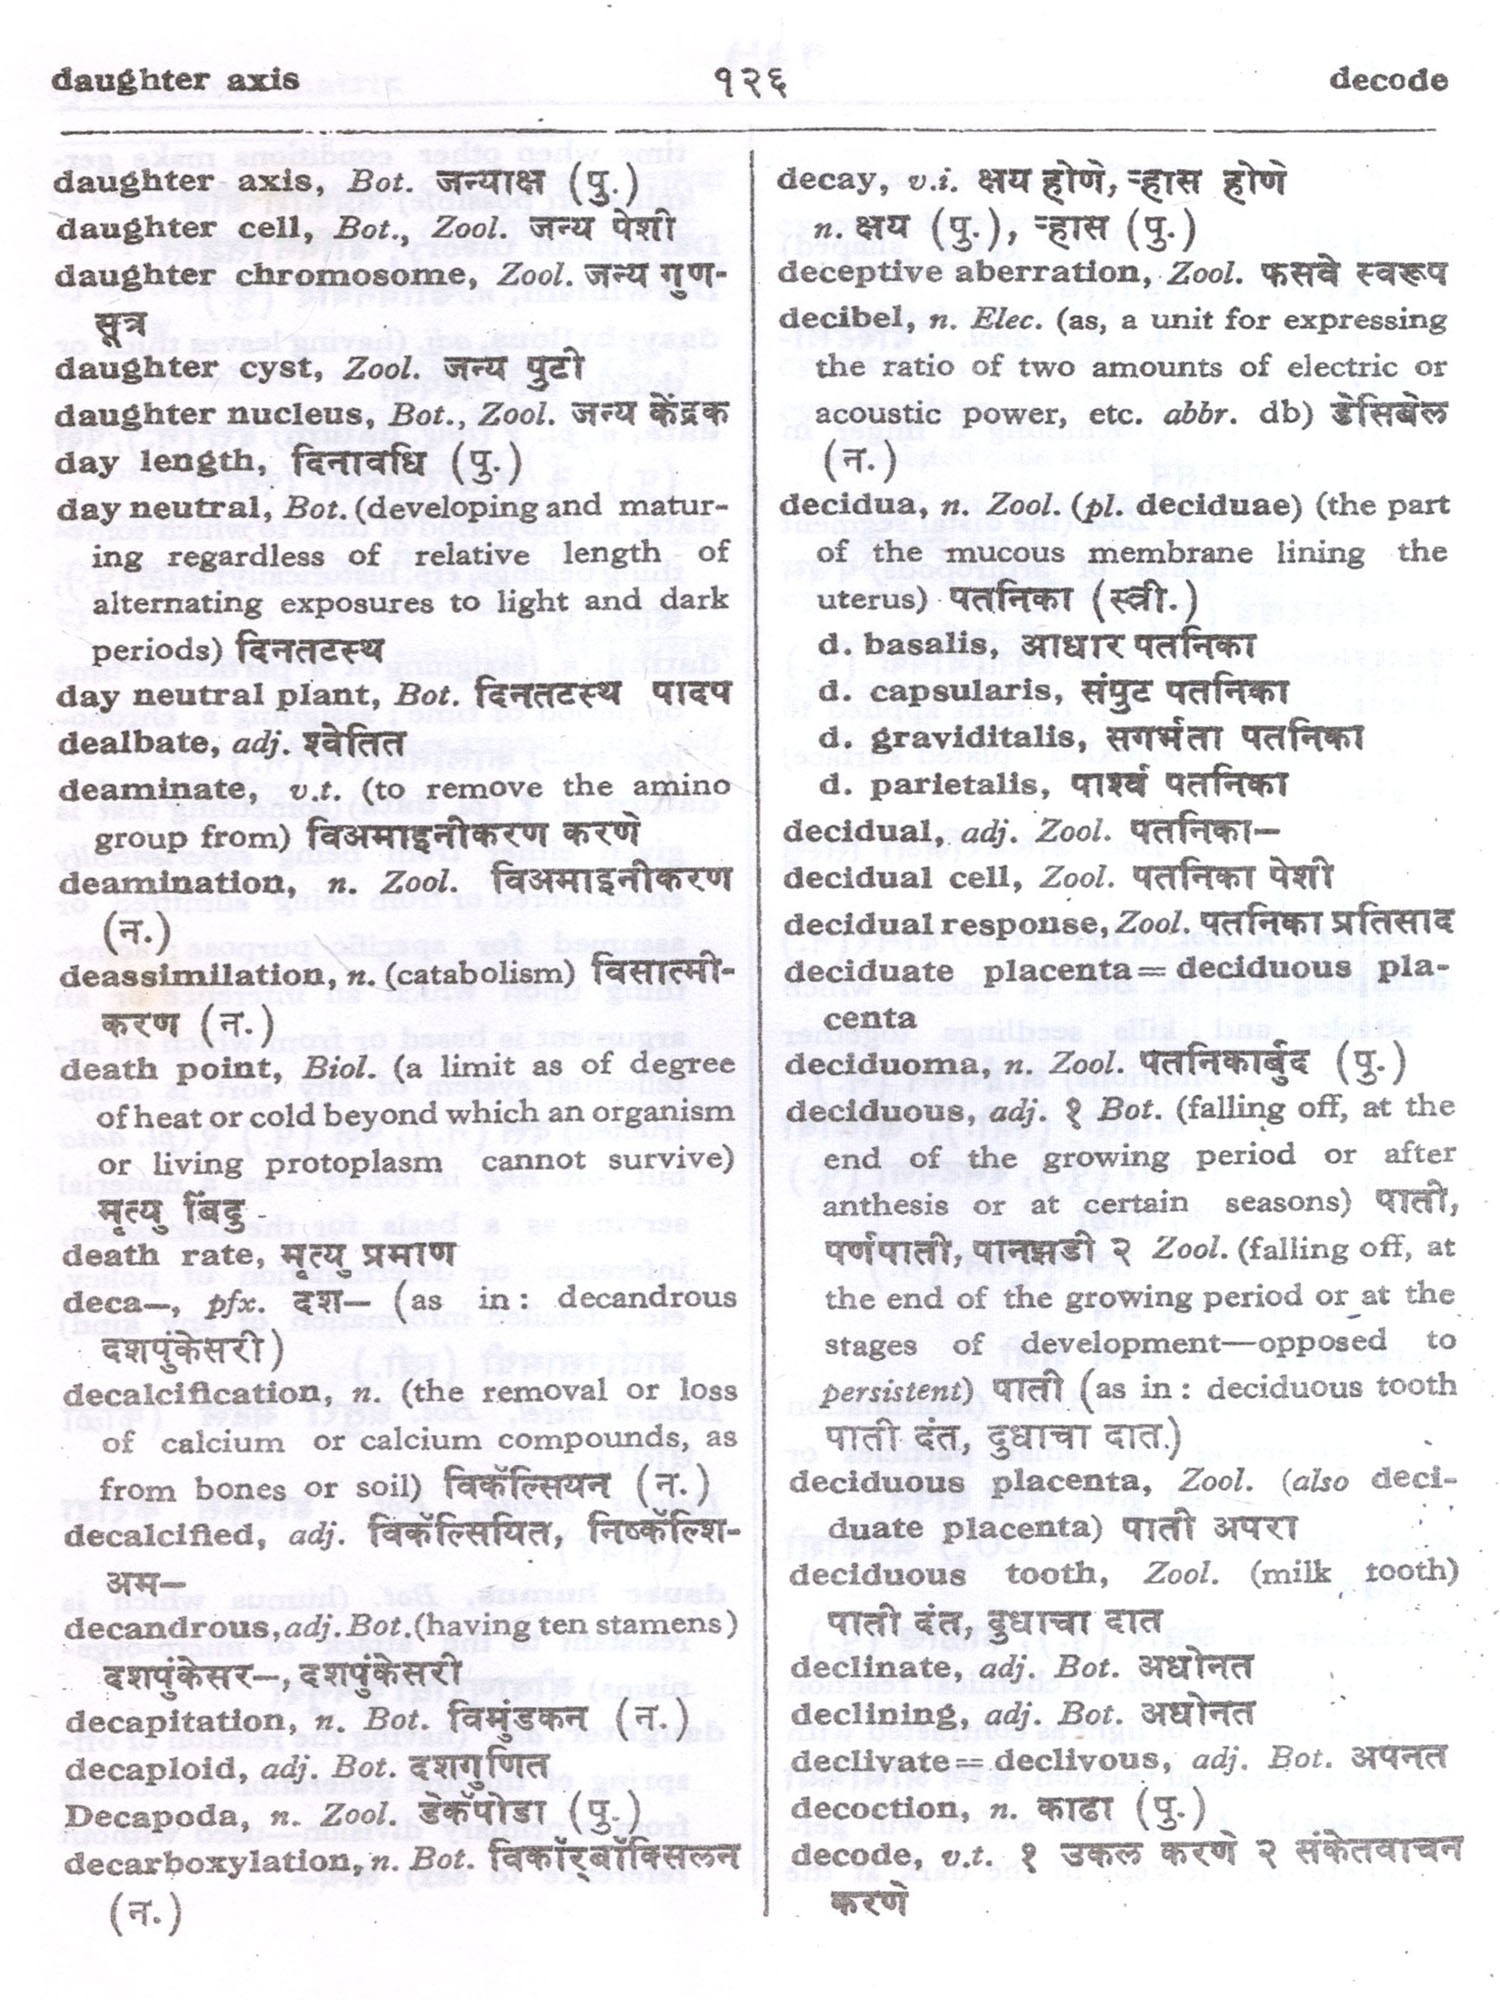 daughter axis १२६ decode
daughter axis, Bot. जन्याक्ष (पु.)
daughter cell, Bot., Zool. जन्य पेशी
daughter chromosome, Zool. जन्य गुण-
सूत्र
daughter cyst, Zool. जन्य पुटी
daughter nucleus, Bot., Zool. जन्य केंद्रक
day length, दिनावधि (पु.)
day neutral, Bot. (developing and matur-
ing regardless of relative length of
alternating exposures to light and dark
periods) दिनतटस्थ
day neutral plant, Bot. दिनतटस्थ पादप
dealbate, adj. श्वेतित
deaminate, v.t. (to remove the amino
group from) विअमाइनीकरण करणे
deamination, n. Zool. विअमाइनीकरण
(न.)
deassimilation, n. (catabolism) विसात्मी-
करण (न.)
death point, Biol. (a limit as of degree
of heat or cold beyond which an organism
or living protoplasm cannot survive)
मृत्यु बिंदु
death rate, मृत्यु प्रमाण
deca—, pfx. दश— (as in : decandrous
दशपुंकेसरी)
decalcification, n. (the removal or loss
of calcium or calcium compounds, as
from bones or soil) विकॅल्सियन (न.)
decalcified, adj. विकॅल्सियित, निष्कॅल्शि-
अम—
decandrous, adj. Bot. (having ten stamens)
दशपुंकेसर—, दशपुंकेसरी
decapitation, n. Bot. विमुंडकन (न.)
decaploid, adj. Bot. दशगुणित
Decapoda, n. Zool. डेकॅपोडा (पु.)
decarboxylation, n. Bot. विकॉर्‍बॉक्सिलन
(न.)
decay, v.i. क्षय होणे, ऱ्हास होणे
n. क्षय (पु.), ऱ्हास (पु.)
deceptive aberration, Zool. फसवे स्वरूप
decibel, n. Elec. (as, a unit for expressing
the ratio of two amounts of electric or
acoustic power, etc. abbr. db) डेसिबेल
(न.)
decidua, n. Zool. (pl. deciduae) (the part
of the mucous membrane lining the
uterus) पतनिका (स्त्री.)
d. basalis, आधार पतनिका
d. capsularis, संपुट पतनिका
d. graviditalis, सगर्भता पतनिका
d. parietalis, पार्श्व पतनिका
decidual, adj. Zool. पतनिका—
decidual cell, Zool. पतनिका पेशी
decidual response, Zool. पतनिका प्रतिसाद
deciduate placenta = deciduous pla-
centa
deciduoma, n. Zool. पतनिकार्बुद (पु.)
deciduous, adj. १ Bot. (falling off, at the
end of the growing period or after
anthesis or at certain seasons) पाती,
पर्णपाती, पानझडी २ Zool. (falling off, at
the end of the growing period or at the
stages of development—opposed to
persistent) पाती (as in : deciduous tooth
पाती दंत, दुधाचा दात.)
deciduous placenta, Zool. (also deci-
duate placenta) पाती अपरा
deciduous tooth, Zool. (milk tooth)
पाती दंत, दुधाचा दात
declinate, adj. Bot. अधोनत
declining, adj. Bot. अधोनत
declivate = declivous, adj. Bot. अपनत
decoction, n. काढा (पु.)
decode, v.t. १ उकल करणे २ संकेतवाचन
करणे